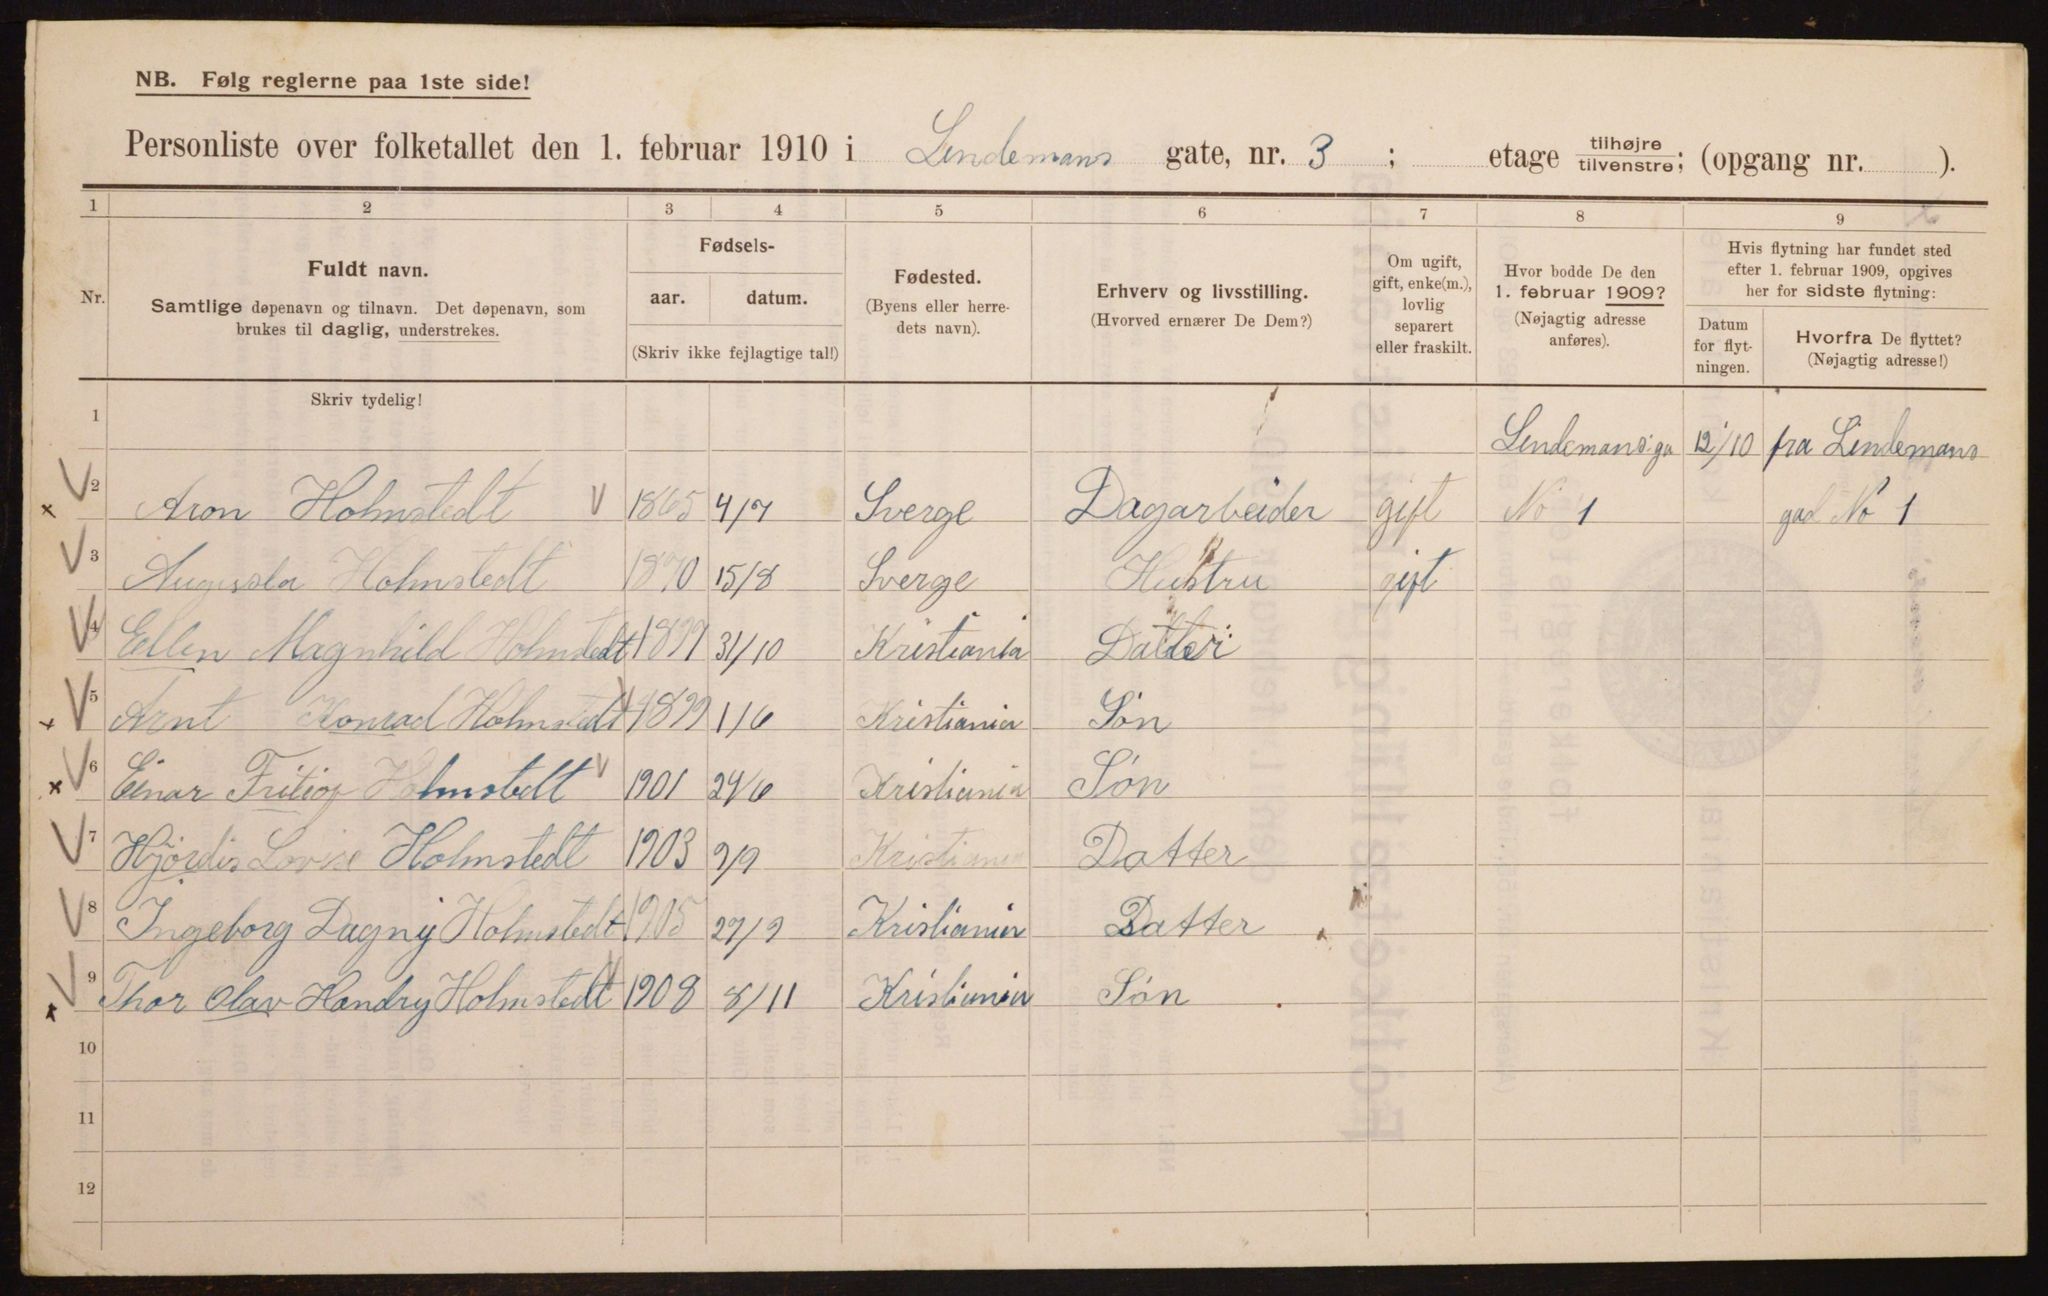 NB. Følg reglerne paa 1ste side!
Personliste over folketallet den 1. februar 1910 i Lindemans gate, nr. 3 ; etage tilhøjre/tilvenstre; (opgang nr. ).
1 2 3 4 5 6 7 8 9
Nr.
Fuldt navn.
Samtlige døpenavn og tilnavn. Det døpenavn, som
brukes til daglig, understrekes.
Fødsels-
aar. datum.
(Skriv ikke fejlagtige tal!)
Fødested.
(Byens eller herre-
dets navn).
Erhverv og livsstilling.
(Hvorved ernærer De Dem?)
Om ugift,
gift, enke(m.),
lovlig
separert
eller fraskilt.
Hvor bodde De den
1. februar 1909?
(Nøjagtig adresse
anføres).
Hvis flytning har fundet sted
efter 1. februar 1909, opgives
her for sidste flytning:
Datum
for flyt-
ningen.
Hvorfra De flyttet?
(Nøjagtig adresse!)
Skriv tydelig!
1 Lindemans ga 12/10 fra Lindemans
2 Aron Holmstedt 1865 4/7 Sverge Dagarbeider gift No 1 gad No 1
3 Augusta Holmstedt 1870 15/8 Sverge Hustru gift
4 Ellen Magnhild Holmstedt 31/10 Kristiania Datter
5 Arnt Konrad Holmstedt 1899 1/6 Kristiania Søn
6 Einar Fritiof Holmstedt 1901 24/6 Kristiania Søn
7 Hjördis Lovise Holmstedt 1903 9/9 Kristiania Datter
8 Ingeborg Dagny Holmstedt 1905 27/9 Kristiania Datter
9 Thor Olav Handry Holmstedt 1908 8/11 Kristiania Søn
10
11
12